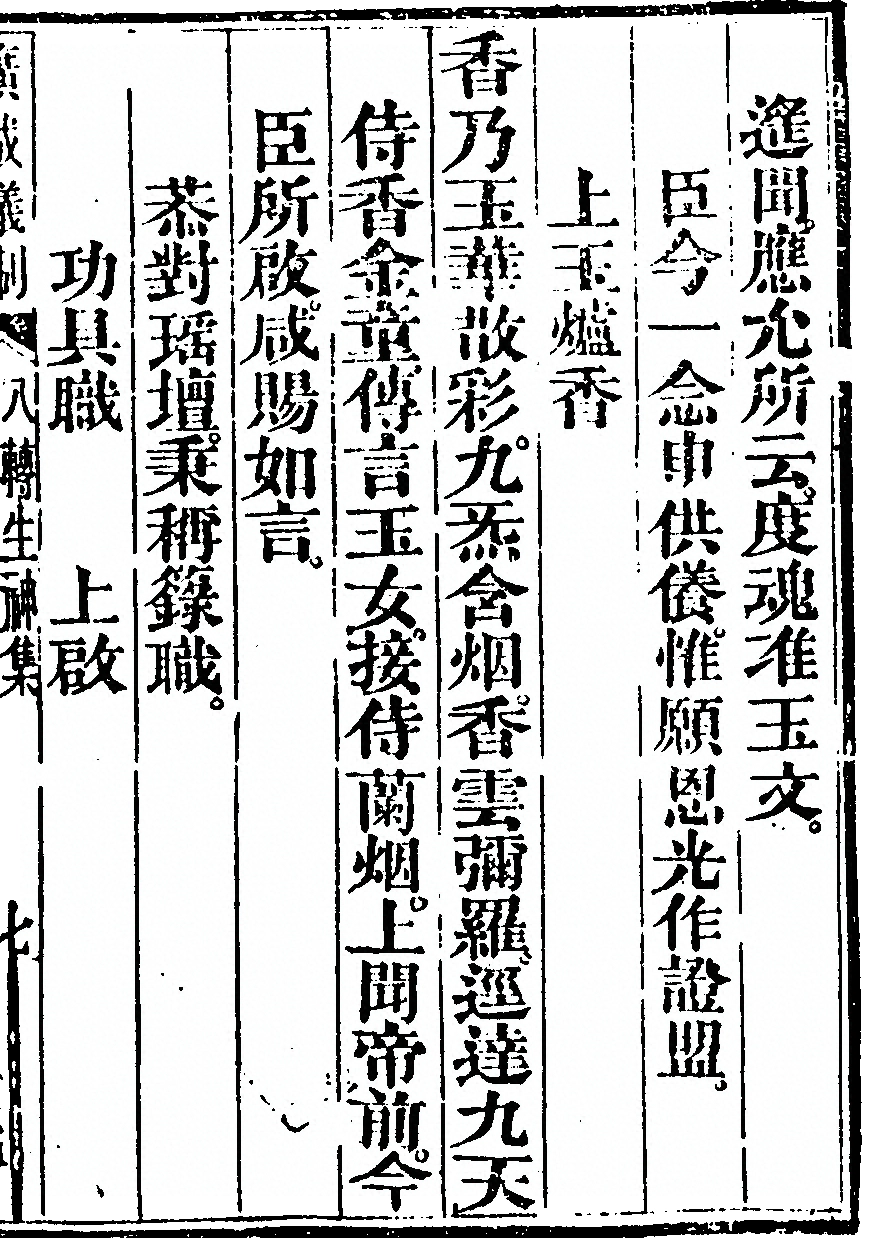 遙聞。應允所云。度魂准玉文。
臣今一念申供儀。惟願恩光作證盟。
上玉爐香
香乃玉華散彩。九炁含烟。香雲彌羅。逕達九天
侍香金童。傳言玉女。接侍蘭烟。上聞帝前。今
臣所啟。咸賜如言。
恭對瑤壇。秉稱籙職。
功具職 上啟
廣成儀制 八轉生神集 七